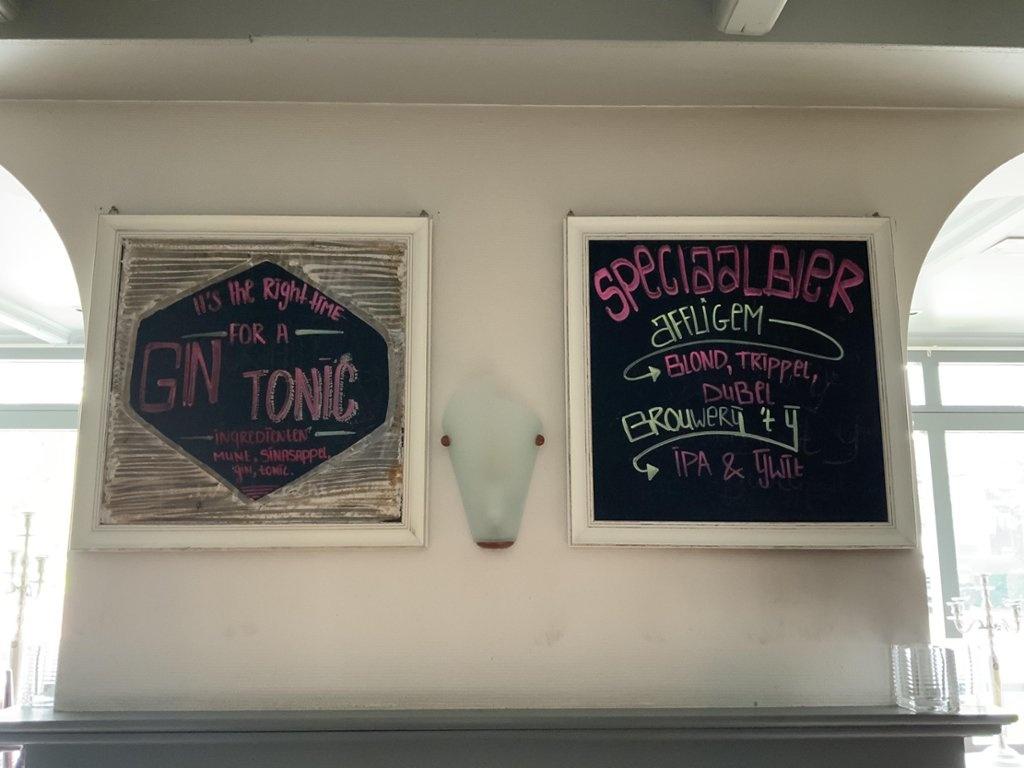 It's the Right time
FOR A
GIN
TONIC
INGREDIENTEN
MUNT, SINASAPPEL,
GIN, TONIC.
SPECIAALBIER
AFFLIGEM
BLOND, TRIPPEL,
DUBEL
BROUWERIJ 't IJ
IPA & IJWIT